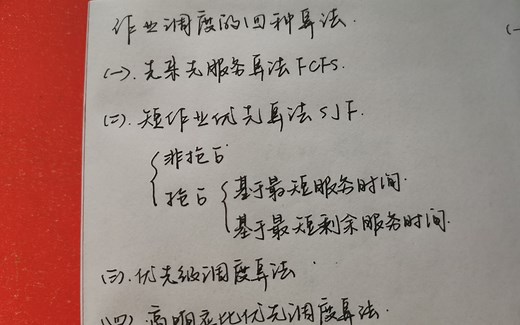 作业调度的四种算法.
(一). 先来先服务算法 FCFS.
(二). 短作业优先算法 SJF.
非抢占
抢占
基于最短服务时间.
基于最短剩余服务时间.
(三). 优先级调度算法
(四). 高响应比优先调度算法.
(一